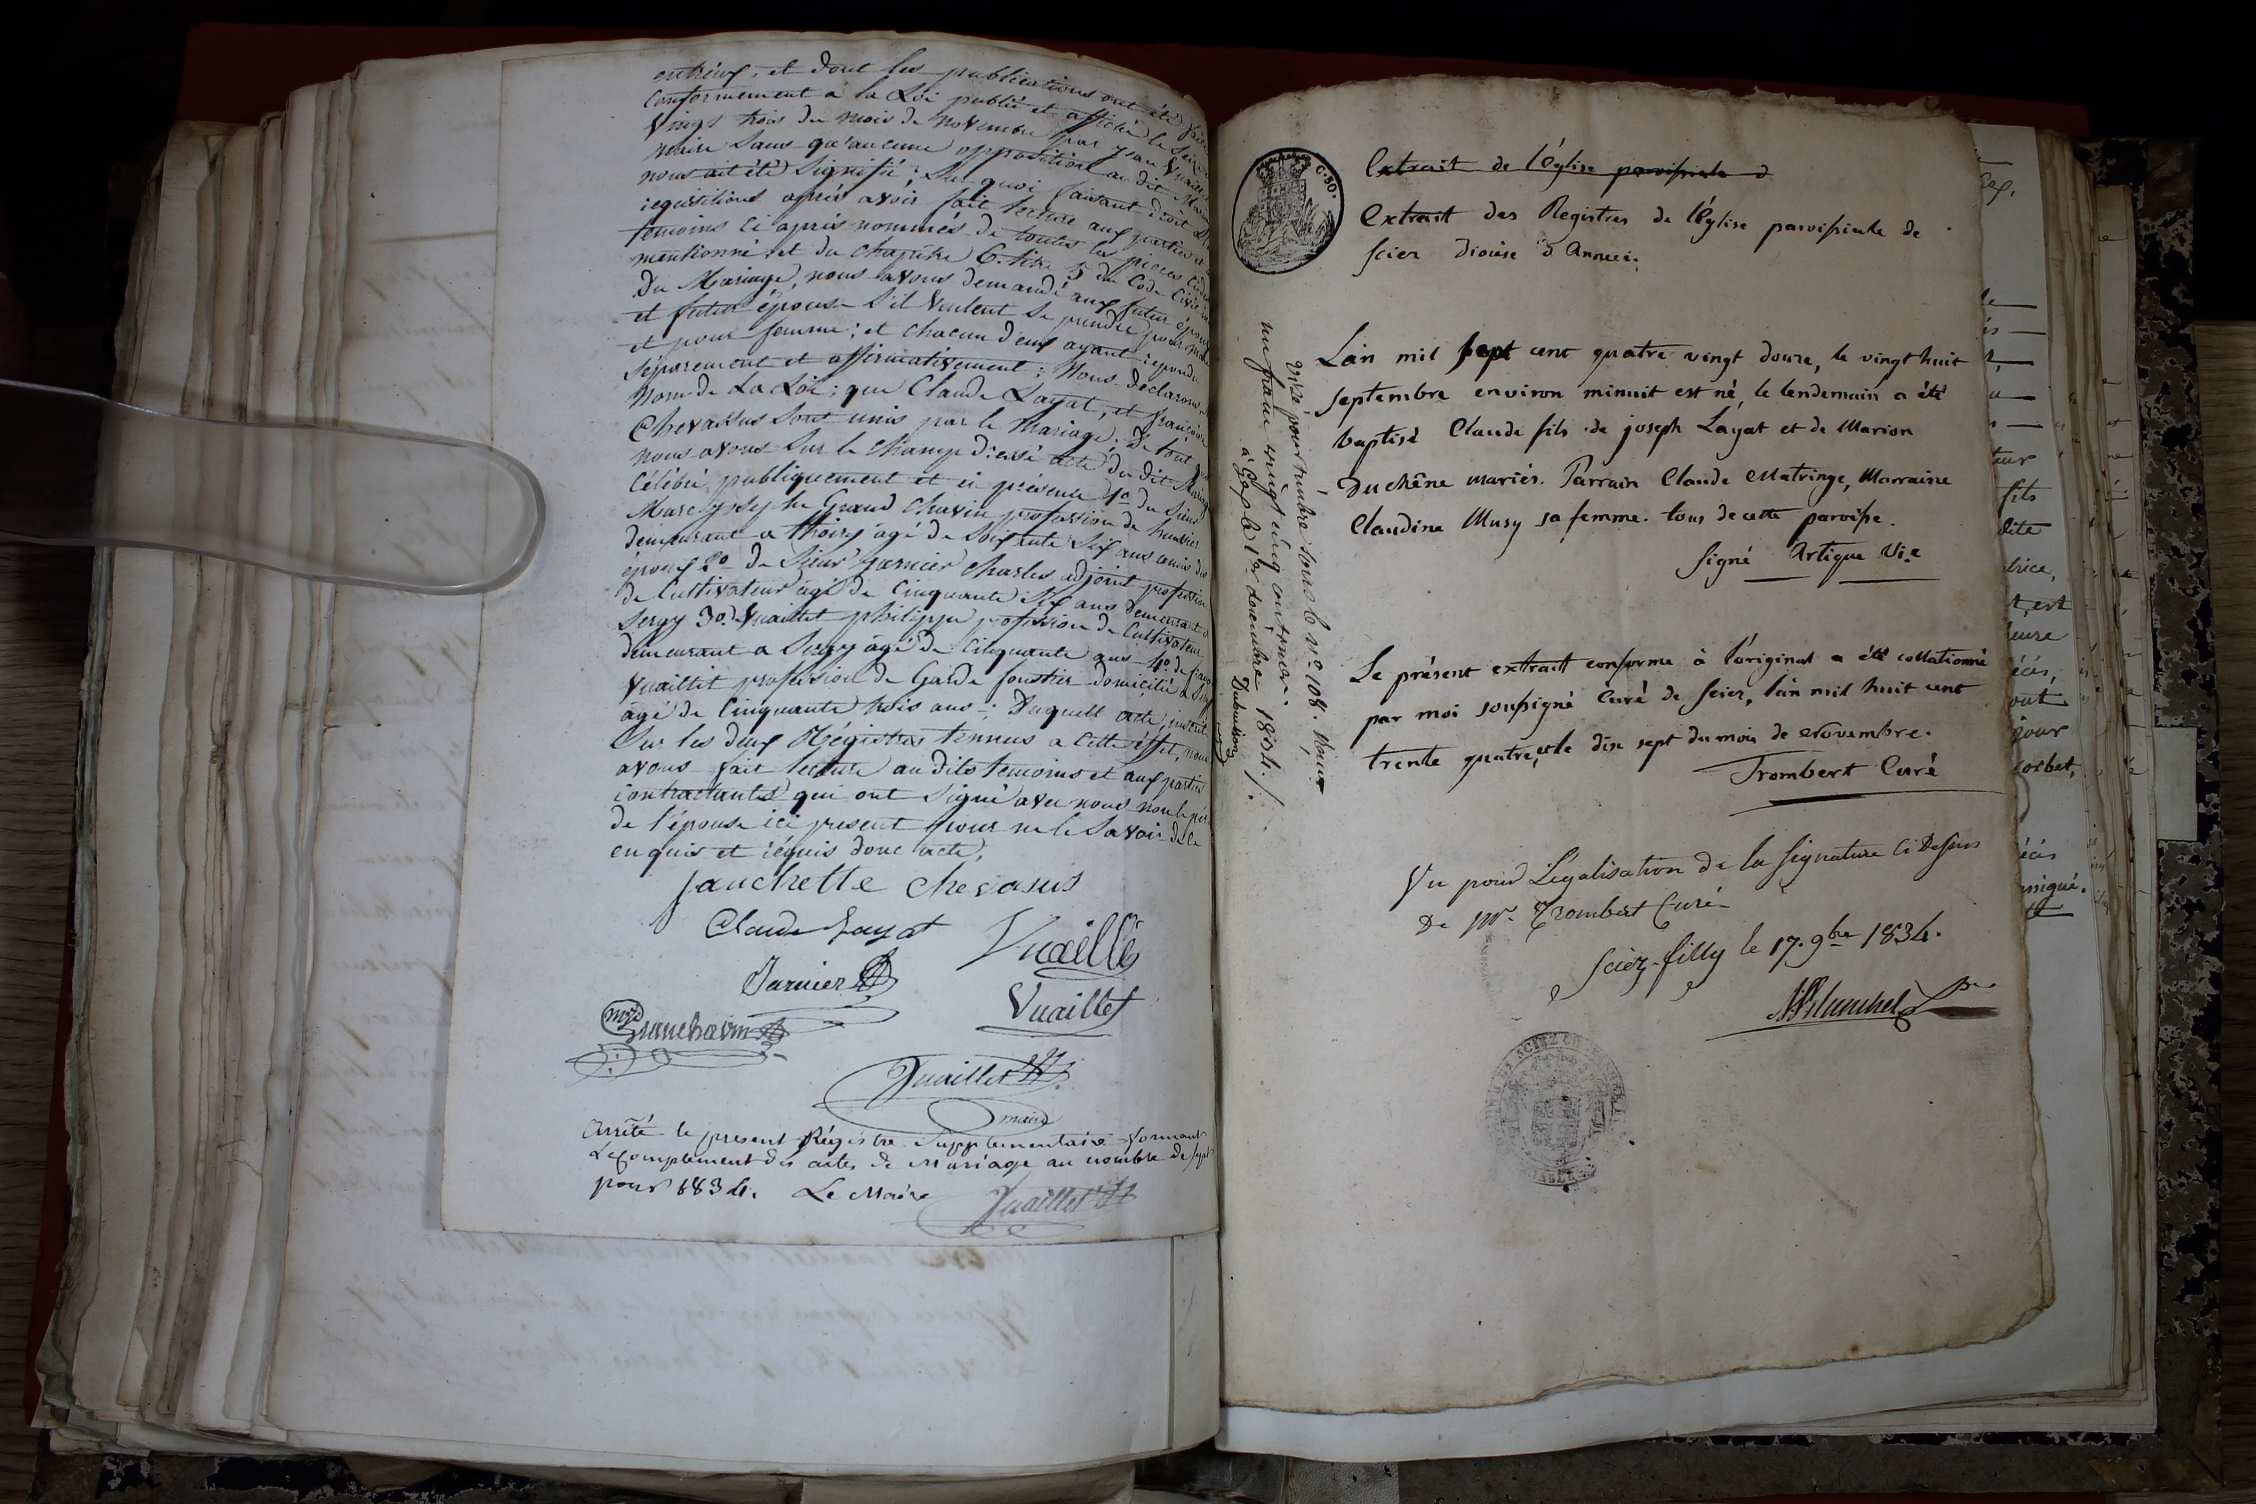 entreux, et dont les publications ont été faite
Conformement a la Loi publié et affiché le
Vingt trois du mois de Novembre par Jean Vuaillet
maire Sans qu'aucune opposition au dit Mariage
nous ait été Signifié ; Sur quoi faisant droit
requisitions après avoir fait lecture aux parties et
temoins ci après nommés de toutes les pieces
mentionné et du chapitre 6. titre 5 du Code Civil
Du Mariage, nous avons demandé aux futur époux
et future épouse S'il veulent Se prendre pour mari
et pour femme : et chacun d'eux ayant répondu
Séparement et affirmativement ; Nous declarons
Nom de La Loi ; que Claude Layat, et françoise
Chevassus Sont unis par le Mariage. De tout
nous avons Sur le champ dressé acte du dit Mariage
Célébré publiquement et en presence 1o du Sieur
Marc Joseph Grand Chavin profession de huissier
demeurant a thoiry âgé de Soixante Six ans amis des
époux 2o de Sieur Garnier Charles adjoint profession
de Cultivateur âgé de Cinquante Six ans demeurant a
Sergy 3o. de Vuaillet philippe profession de Cultivateur
demeurant a Sergy âgé de Cinquante ans 4o. de
Vuaillet profession de Garde forestier domicilié a
âgé de Cinquante trois ans ; Duquell acte, inscrit
Sur les deux Régistres tennus a cette éffet, nous
avons fait lecture au dits temoins et aux parties
contractantes qui ont Signé avec nous non le père
de l'épouse ici present pour ne le Savoir de ce
enquis et réquis donc acte,
fanchette chevasus
Claude Layat Vuaillet
Garnier
Vuaillet
mj Granchavin
Vuaillet
maire
Arrêté le present Régistre Supplementaire formant
Le Complement des actes de Mariage au nombre de Sept
pour 1834. Le Maire Vuaillet
C. 50.
Extrait de l'église paroissiale d
Extrait des Registres de l'église paroissiale de
Sciez Diocèse d'Anneci.
Visé pour timbre Sous le no. 108. Reçu
un franc vingt cinq centimes.
à Gex le 1er decembre 1834 ./.
L'an mil sept cent quatre vingt douze, le vingt huit
septembre environ minuit est né, le lendemain a été
baptisé Claude fils de joseph Layat et de Marion
Duchêne mariés. Parrain Claude Matringe, Marraine
Claudine Musy sa femme. tous de cette paroisse.
Signé Artique Vi.e
Le présent extrait conforme à l'original a été collationné
par moi soussigné Curé de Sciez, l'an mil huit cent
trente quatre, et le dix sept du mois de Novembre.
Trombert Curé
Vu pour Légalisation de la signature ci Dessus
De Mr. Trombert Curé.
Sciez-filly le 17. 9bre 1834.